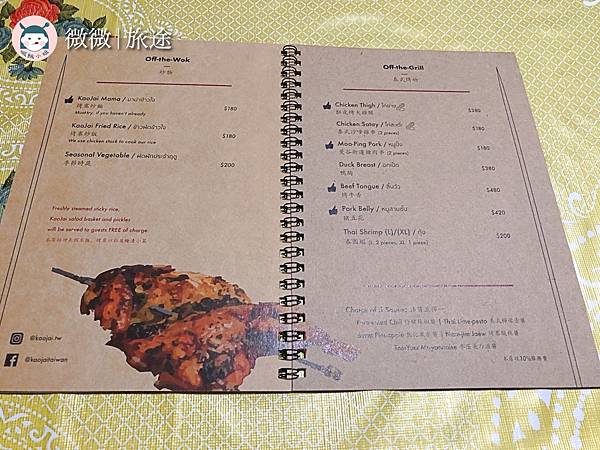 微微|旅途
Off-the-Wok
炒麵
KaoJai Mama / มาม่าเข้าใจ $180
烤寨炒麵
Musttry, if you haven't already
KaoJai Fried Rice / ข้าวผัดเข้าใจ $180
烤寨炒飯
We use chicken stock to cook our rice
Seasonal Vegetable / ผัดผักประจำฤดู $200
季節時蔬
Freshly steamed sticky rice,
KaoJai salad basket and pickles
will be served to guests FREE of charge
@kaojai.tw
@kaojaitaiwan
Off-the-Grill
泰式烤物
Chicken Thigh / ไก่ย่าง $280
Chicken Satay / ไก่สะเต๊ะ $180
泰式沙嗲雞串 (2 pieces)
Moo-Ping Pork / หมูปิ้ง $180
曼谷街邊豬肉串 (2 pieces)
Duck Breast / อกเป็ด $380
鴨胸
Beef Tongue / ลิ้นวัว $480
烤牛舌
Pork Belly / หมูสามชั้น $420
鹹五花
Thai Shrimp (L)/(XL) / กุ้ง $200
泰國蝦 (L: 2 pieces, XL: 1 piece)
Choice of 2 Sauces 沾醬五擇二
Thai Lime-pesto
Burnt Pineapple
Mayonnaise
本店酌10%服務費